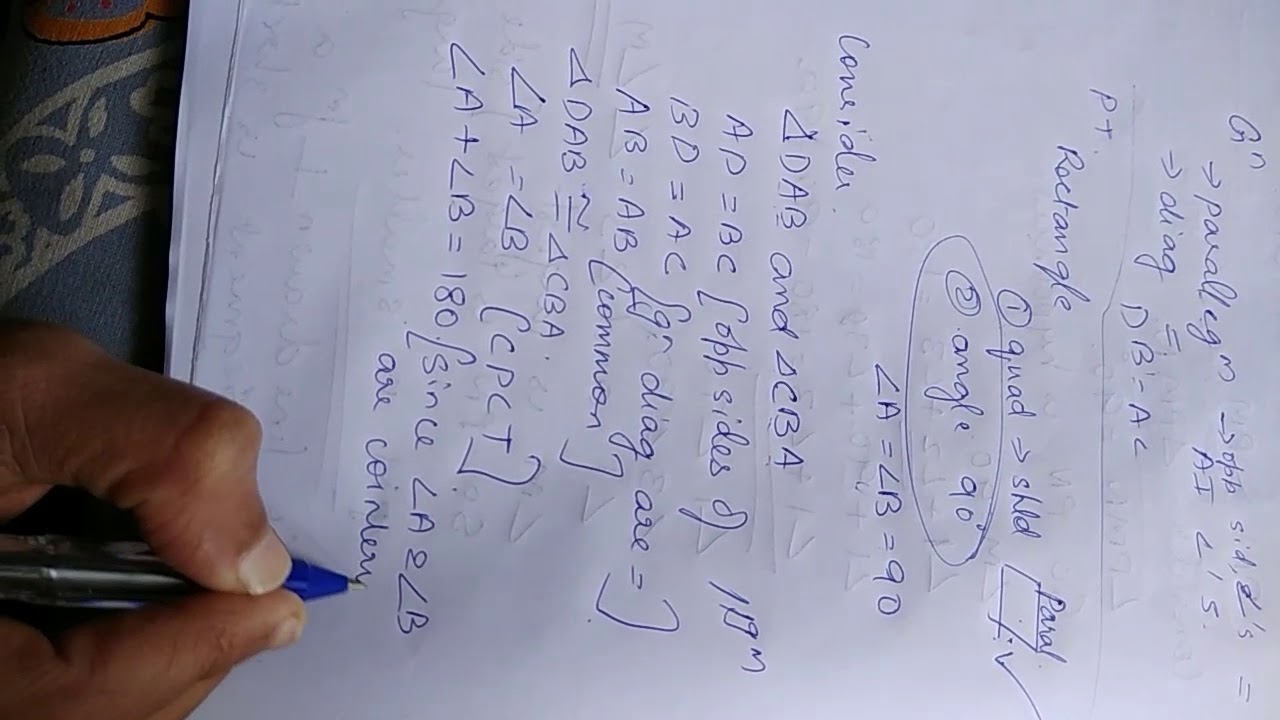 Gn
→ parallegm → opp sid, ∠'s =
→ diag = AI ∠'s.
DB = AC
PT.
Rectangle
① quad → shld Paral
② angle 90°
∠A = ∠B = 90
Consider.
ΔDAB and ΔCBA
AD = BC [opp sides of llgm
BD = AC [gn diag are =]
AB = AB [common]
ΔDAB ≅ ΔCBA.
∠A = ∠B [CPCT]
∠A + ∠B = 180 [Since ∠A & ∠B
are